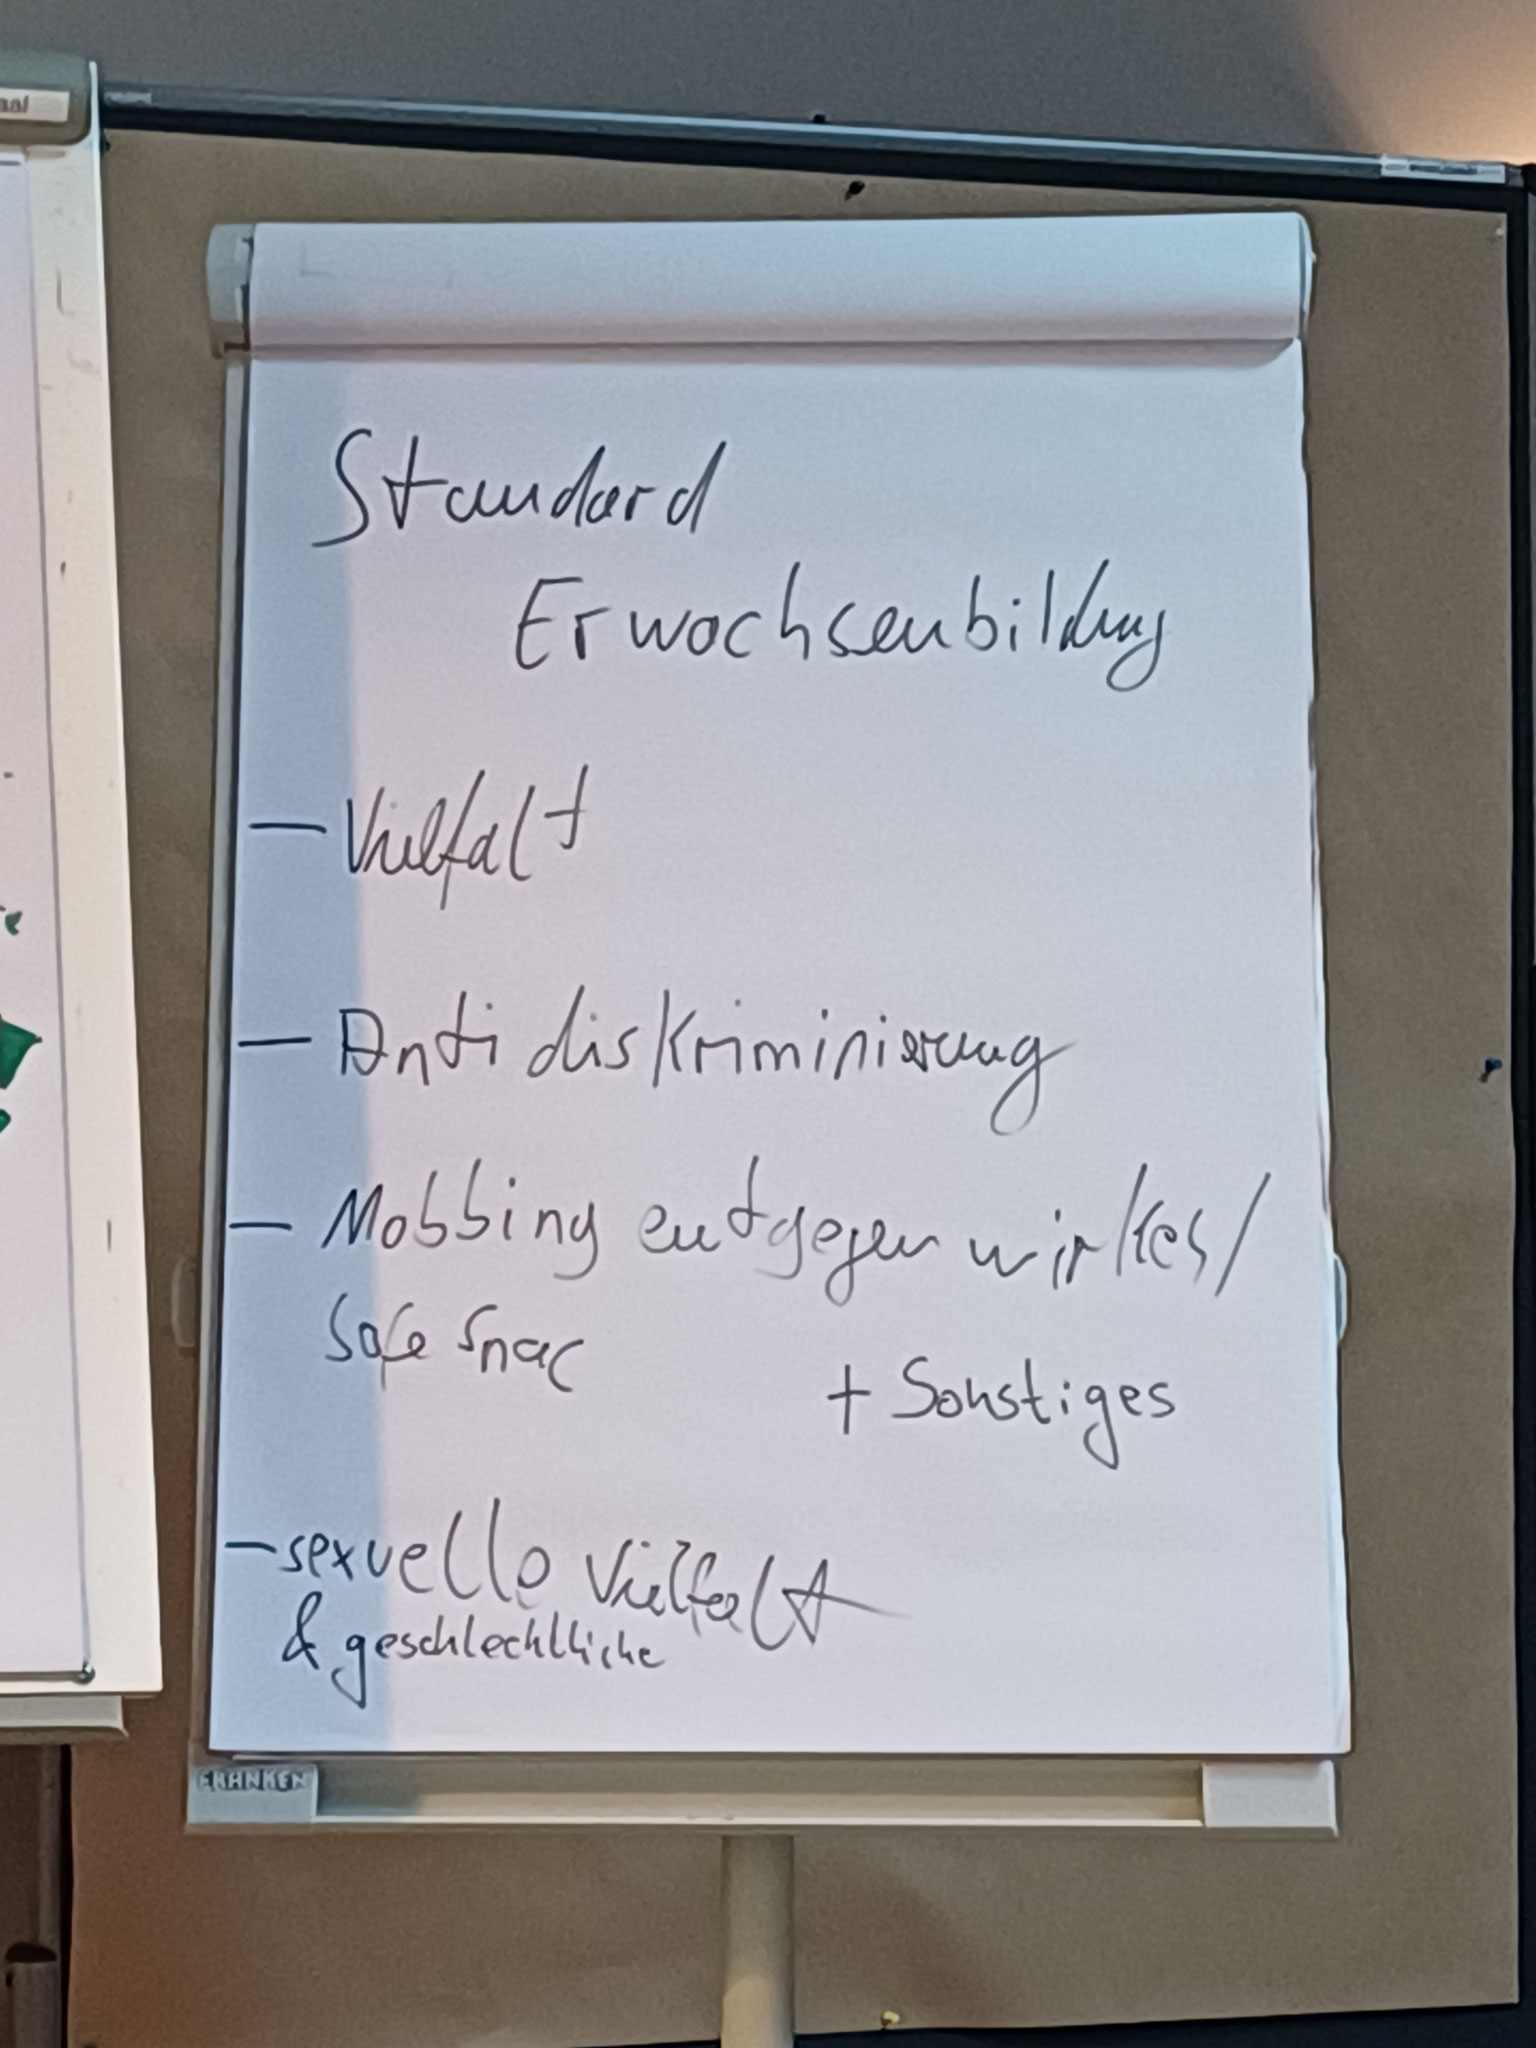 Standard
Erwachsenbildung
- Vielfalt
- Antidiskriminierung
- Mobbing entgegen wirken/
Safe
+ Sonstiges
- sexuelle Vielfalt
& geschlechtliche
FRANKEN